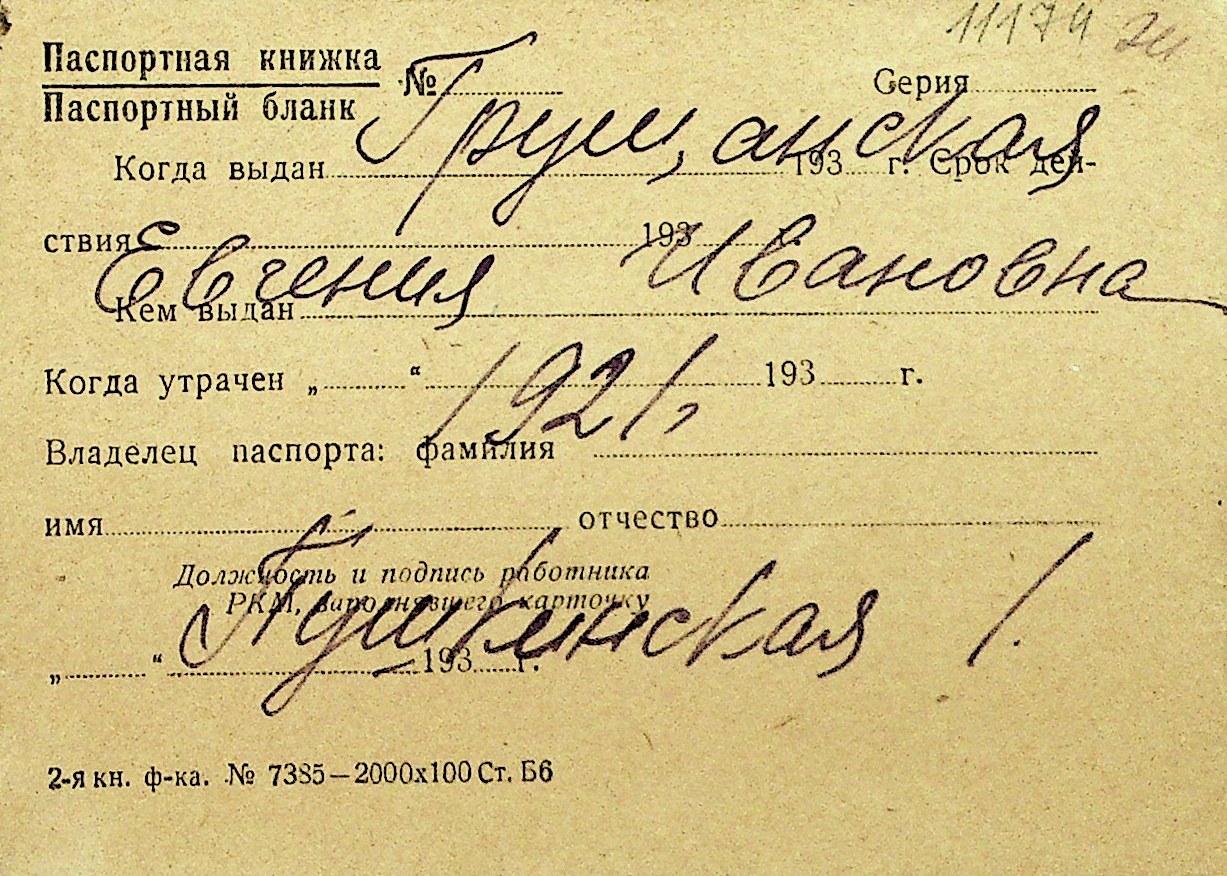 11174
Паспортная книжка
Паспортный бланк
№ Серия
Грущанская
Когда выдан 193 г. Срок дей-
ствия 193
Евгения Ивановна
Кем выдан
Когда утрачен „ “ 193 г.
1921
Владелец паспорта: фамилия
имя отчество
Должность и подпись работника
РКМ, заполнявшего карточку
Пушкинская 1.
„ “ 193 г.
2-я кн. ф-ка. № 7385—2000х100 Ст. Б6